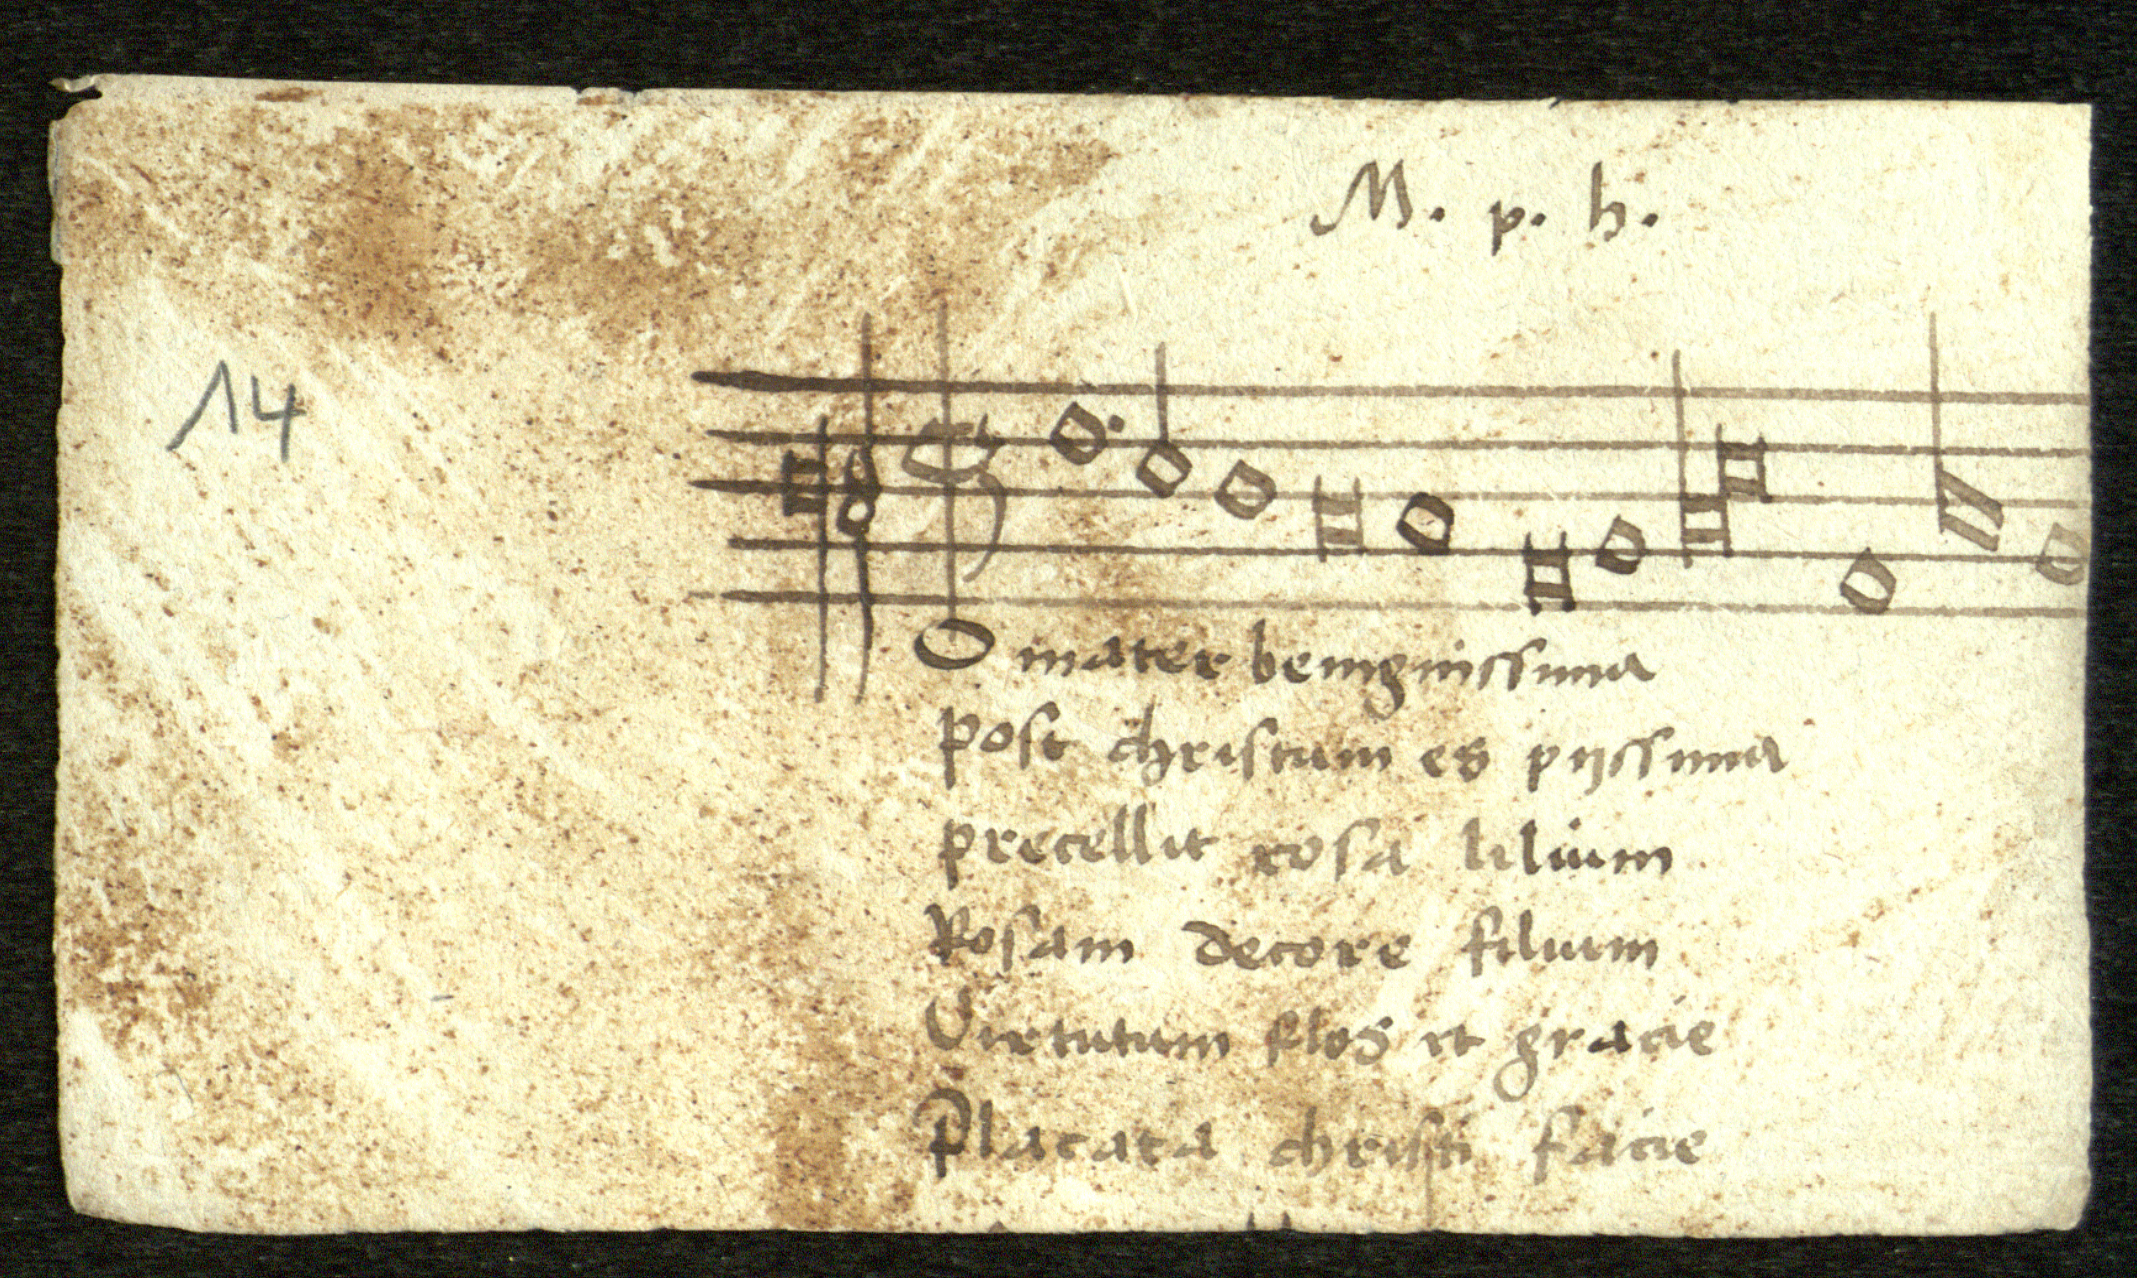 M. p. h.
14
O mater benignissima
post christum es pijssima
precellit rosa lilium
Rosam decore filium
Virtutum flos et gracie
Placata christi facie